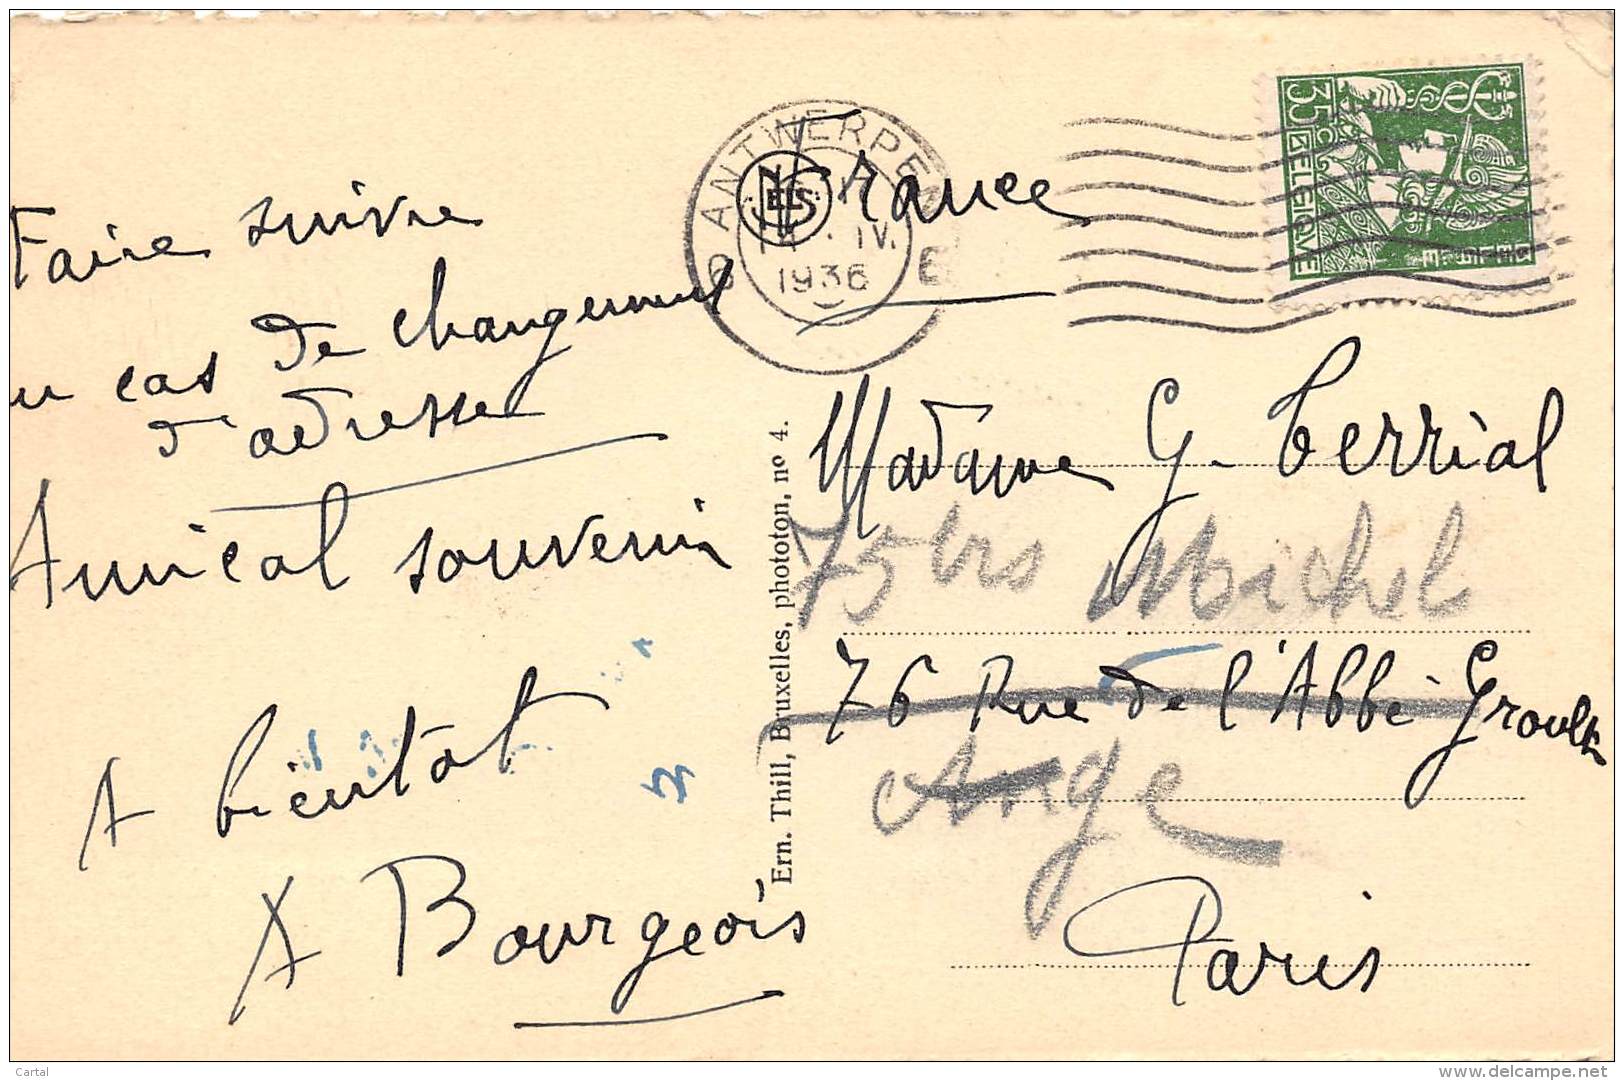 Faire suivre
en cas de changement
d'adresse
Amical souvenir
A bientot
A Bourgeois
Ern. Thill, Bruxelles, phototon, nº 4.
NELS
ANTWERPEN
IV.
1936
France
35
BELGIQUE
BELGIË
Madame G. Terrial
75 bis Michel
76 Rue de l'Abbé Groult
Ange
Paris
Cartal
www.delcampe.net